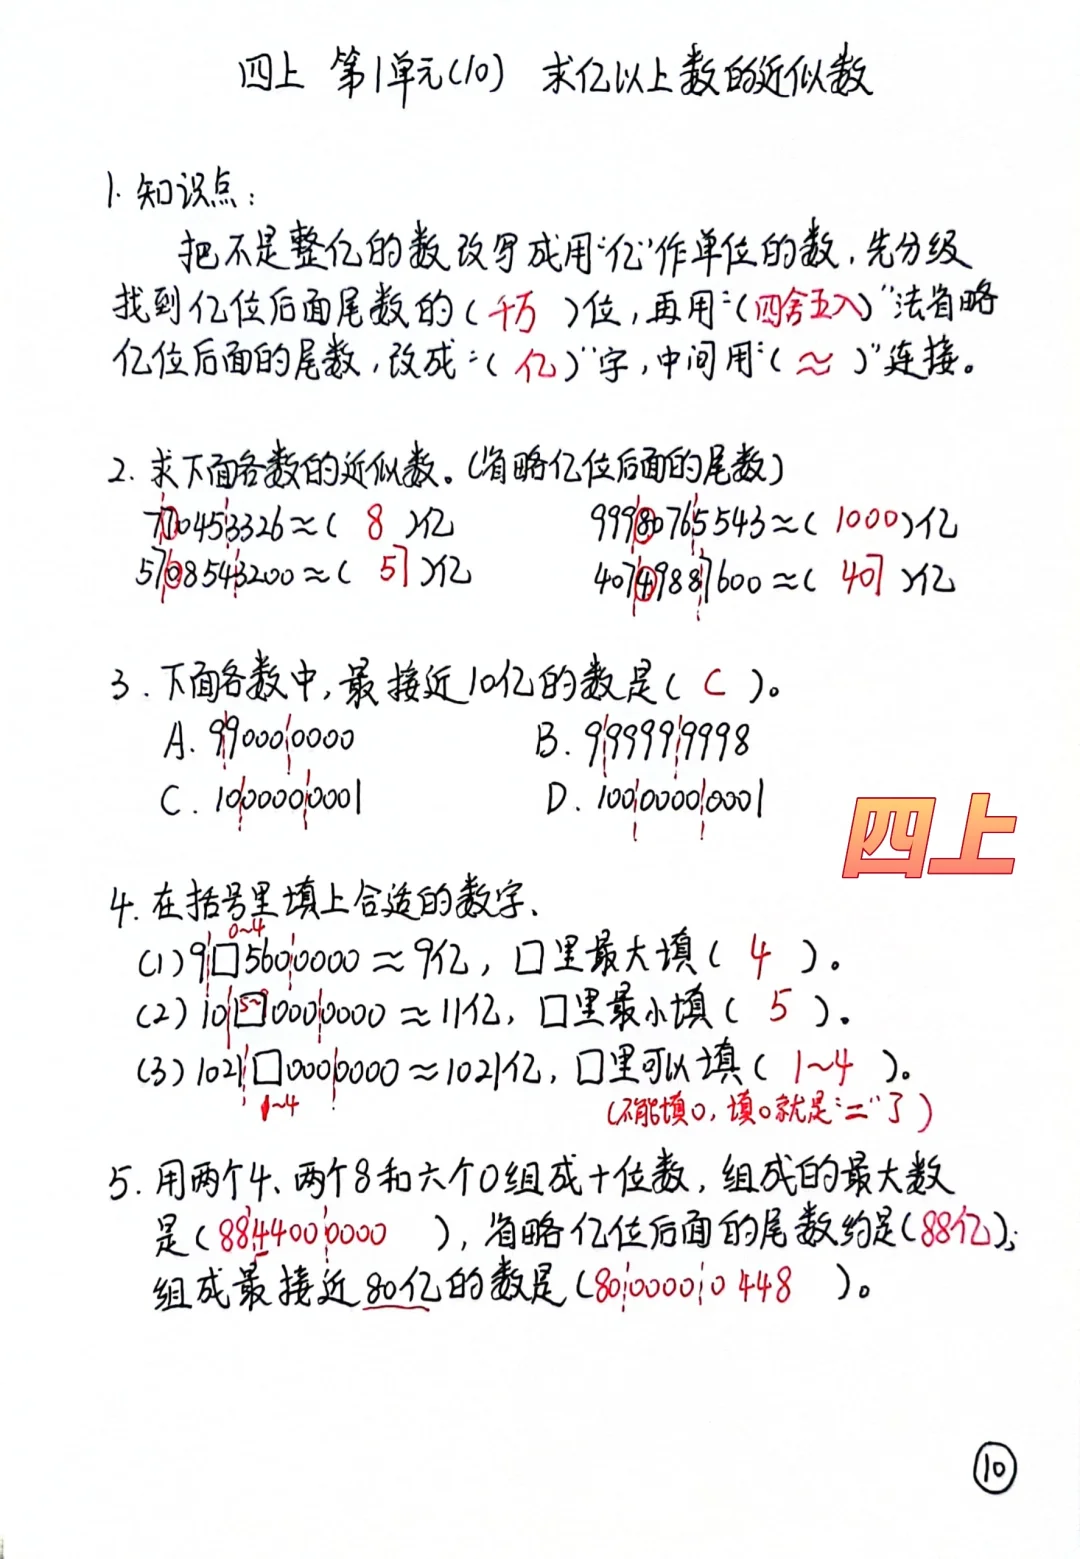 四上 第1单元(10) 求亿以上数的近似数
1.知识点:
把不是整亿的数改写成用“亿”作单位的数,先分级
找到亿位后面尾数的(千万)位,再用“(四舍五入)”法省略
亿位后面的尾数,改成“(亿)”字,中间用“(≈)”连接。
2.求下面各数的近似数。(省略亿位后面的尾数)
770453326≈(8)亿 99980765543≈(1000)亿
5708543200≈(57)亿 40749887600≈(407)亿
3.下面各数中,最接近10亿的数是(C)。
A.990000000 B.999999998
C.1000000001 D.10000000001
四上
4.在括号里填上合适的数字、
0~4
(1)9□5600000≈9亿,□里最大填(4)。
5~9
(2)10□0000000≈11亿,□里最小填(5)。
(3)1021□0000000≈1021亿,□里可以填(1~4)。
1~4 (不能填0,填0就是“=”了)
5.用两个4、两个8和六个0组成十位数,组成的最大数
是(8844000000),省略亿位后面的尾数约是(88亿);
组成最接近80亿的数是(8000000448)。
10